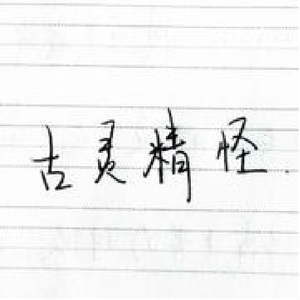 古灵精怪.